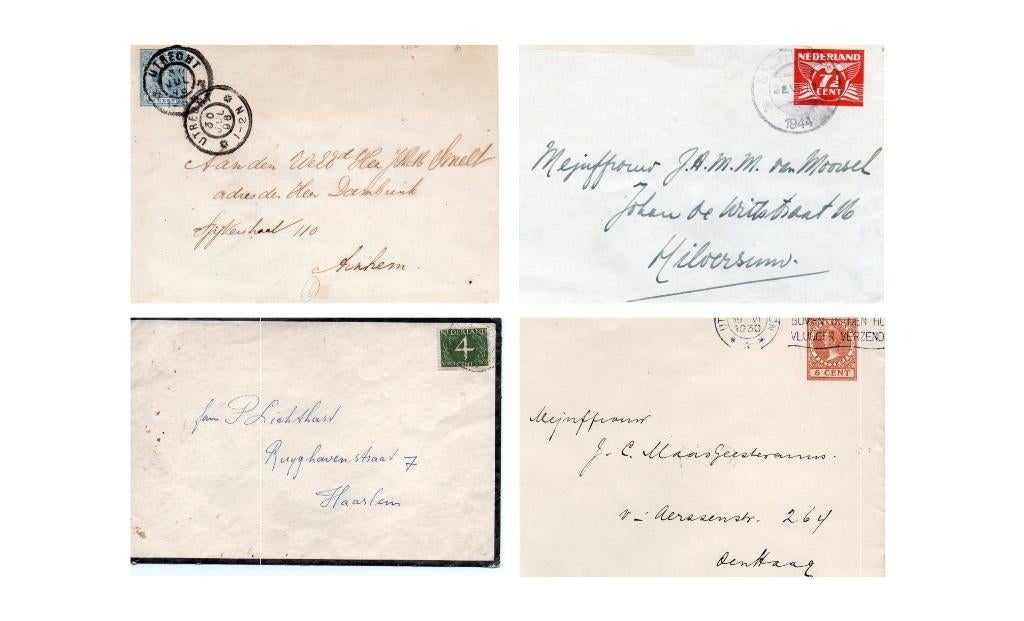 UTRECHT
30
JUL
98
UTRECHT
30
JUL
98
1-2 N
CENT
Aan den WelEd Heer
adres den Heer Dambrink
Spijkerstraat 110
Arnhem.
NEDERLAND
7½
CENT
22
1944
Mejuffrouw J.A.M.M. van Moorsel
Johan de Wittstraat 16
Hilversum.
NEDERLAND
4
CENT
fam P Lichthart
Ruyghaverstraat 7
Haarlem
1930
VLUGGER VERZEND
6 CENT
Mejuffrouw
J. C. Maasgeesteranus.
v- Aerssenstr. 264
den Haag